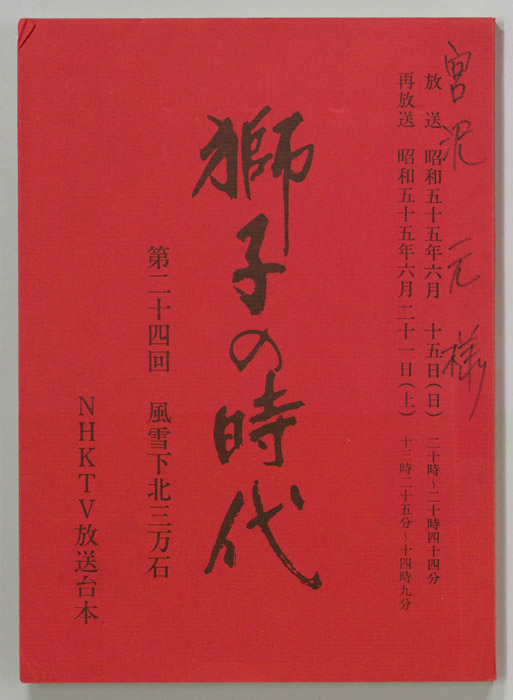 宮沢 元様
放送 昭和五十五年六月 十五日(日) 二十時~二十時四十四分
再放送 昭和五十五年六月二十一日(土) 十三時二十五分~十四時九分
獅子の時代
第二十四回 風雪下北三万石
NHKTV放送台本